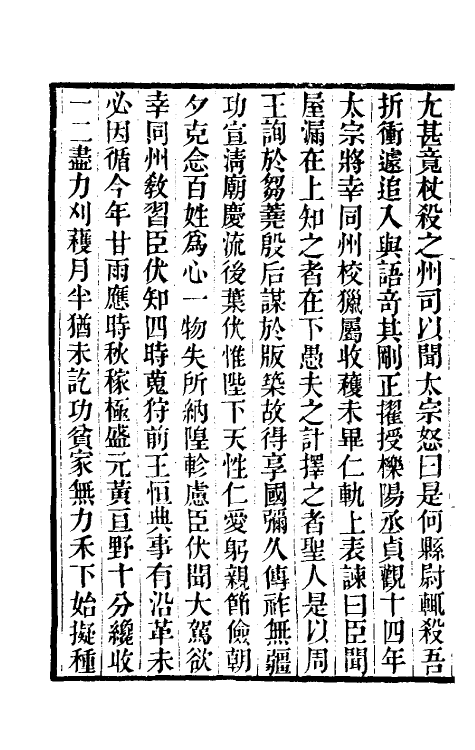 尤甚竟杖殺之州司以聞太宗怒曰是何縣尉輒殺吾
折衝遽追入與語奇其剛正擢授櫟陽丞貞觀十四年
太宗將幸同州校獵屬收穫未畢仁軌上表諫曰臣聞
屋漏在上知之者在下愚夫之計擇之者聖人是以周
王詢於芻蕘殷后謀於版築故得享國彌久傳祚無疆
功宣清廟慶流後葉伏惟陛下天性仁愛躬親節儉朝
夕克念百姓爲心一物失所納隍軫慮臣伏聞大駕欲
幸同州敎習臣伏知四時蒐狩前王恒典事有沿革未
必因循今年甘雨應時秋稼極盛元黃亘野十分纔收
一二盡力刈穫月半猶未訖功貧家無力禾下始擬種